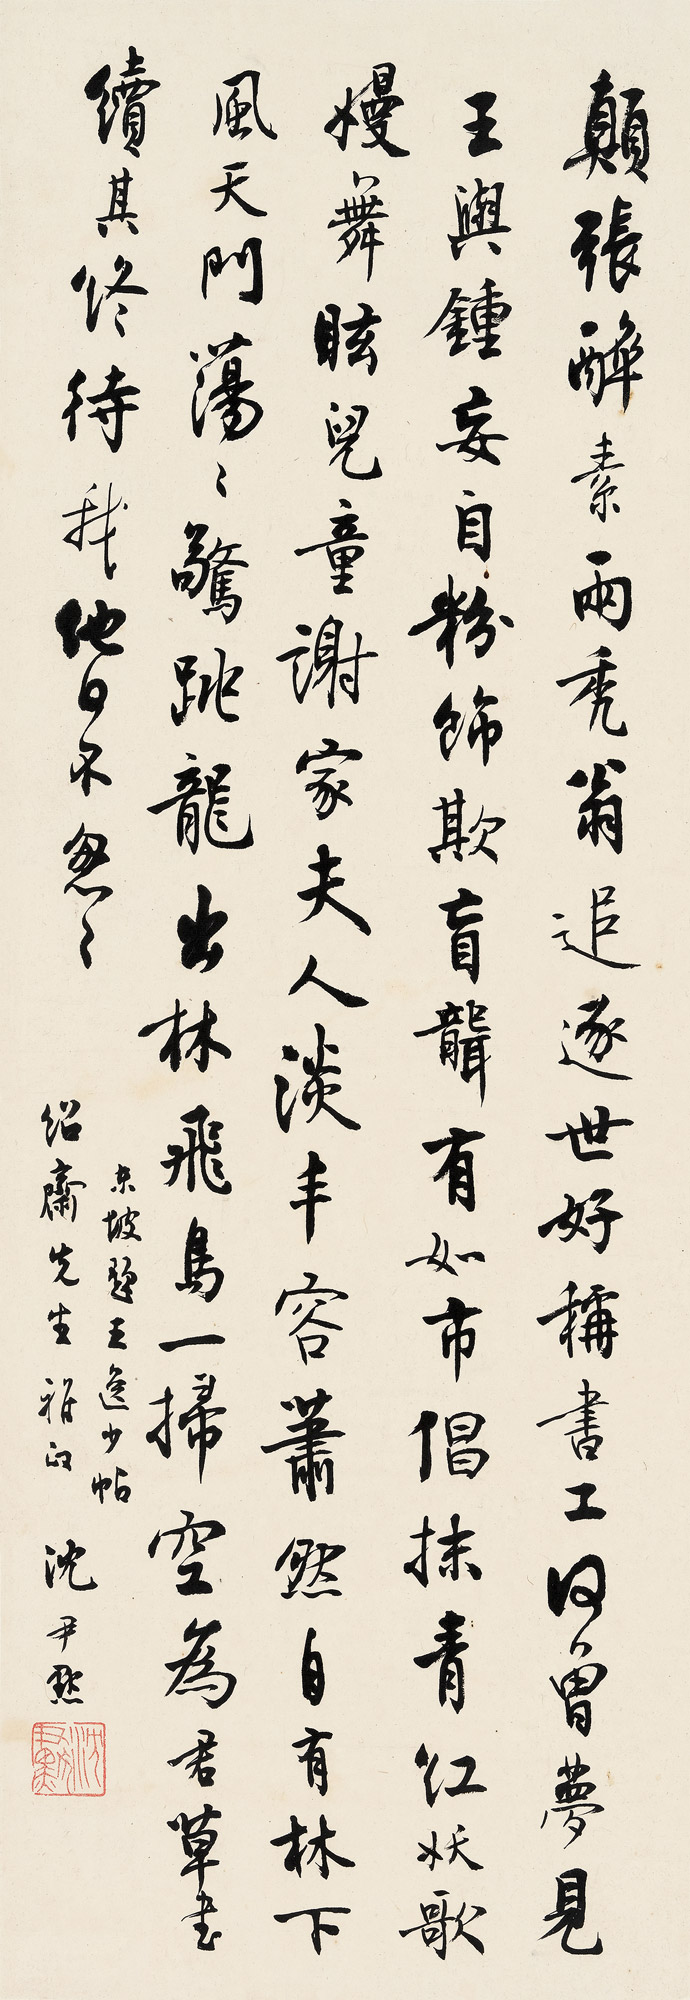 顛張醉素兩禿翁追逐世好稱書工何曾夢見
王與鍾妄自粉飾欺盲聾有如市倡抹青紅妖歌
嫚舞眩兒童謝家夫人淡丰容蕭然自有林下
風天門蕩〻驚跳龍出林飛鳥一掃空為君草書
續其終待我他日不怱〻
東坡題王逸少帖
紹齋先生雅正
沈尹默
沈尹默